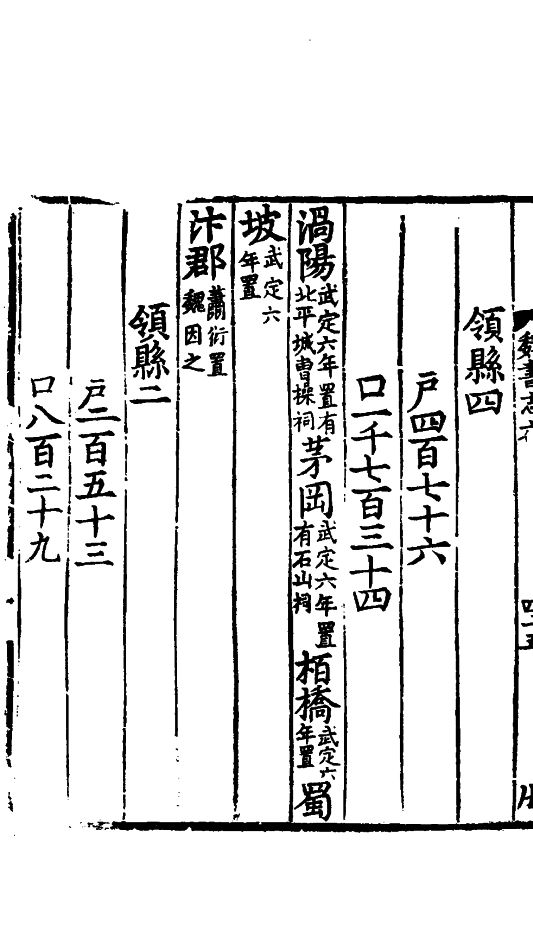 魏書志六
四十五
領縣四
戶四百七十六
口一千七百三十四
渦陽武定六年置有北平城曹操祠茅岡武定六年置有石山祠栢橋武定六年置蜀
坡武定六年置
汴郡蕭衍置魏因之
領縣二
戶二百五十三
口八百二十九